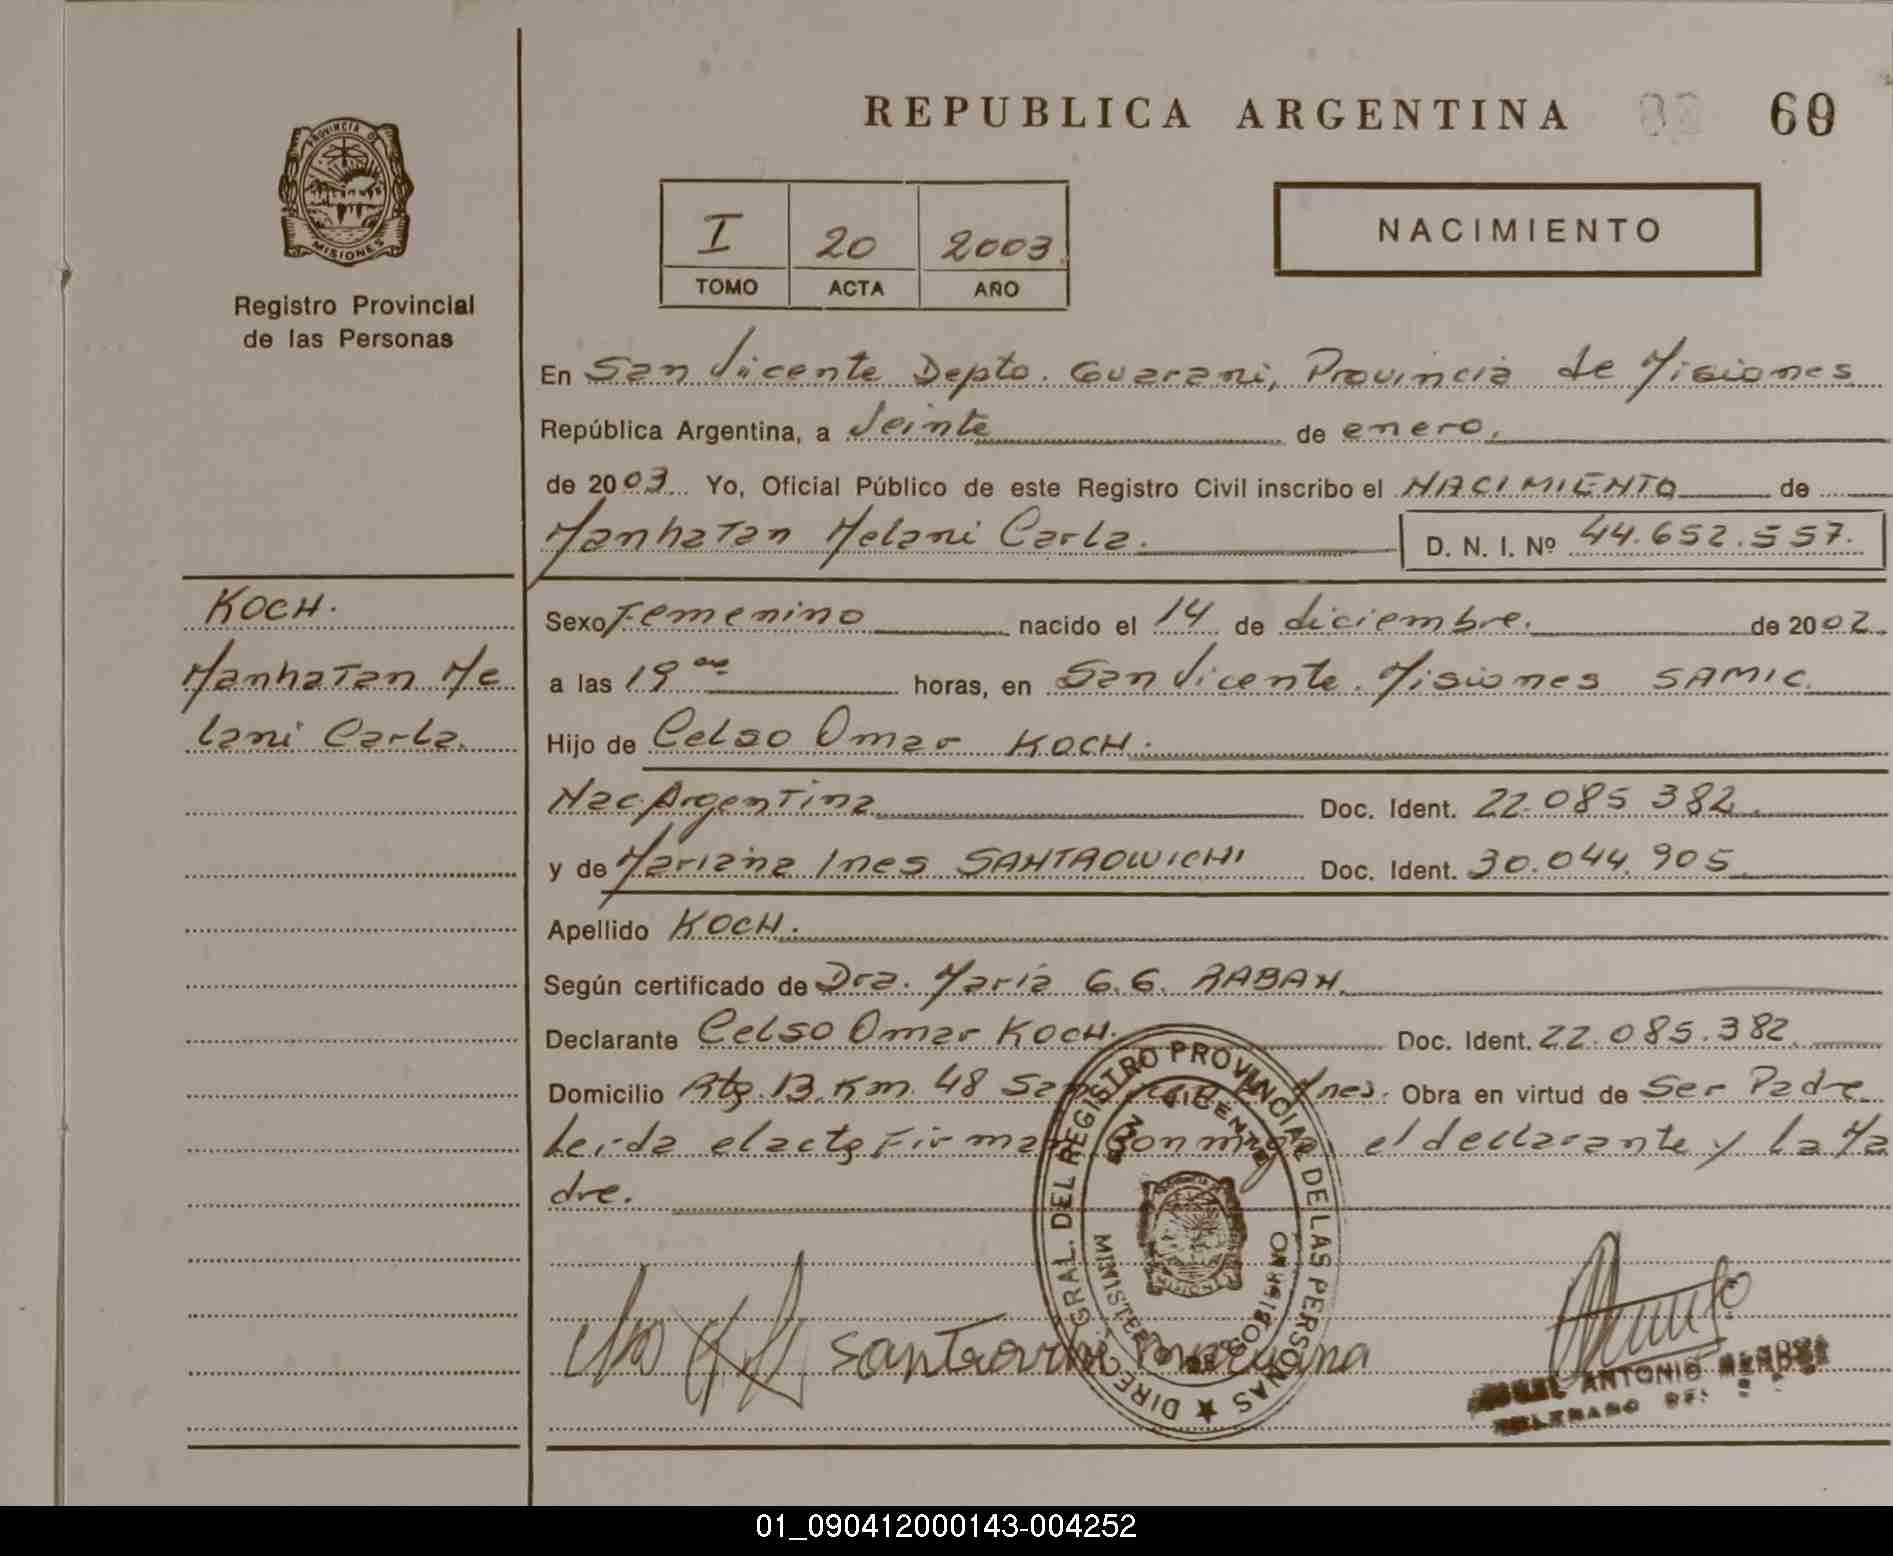 REPUBLICA ARGENTINA 60
PROVINCIA DE
MISIONES
Registro Provincial
de las Personas
I 20 2003
TOMO ACTA AÑO
NACIMIENTO
En San Vicente Depto. Guarani, Provincia de Misiones
República Argentina, a Veinte de enero,
de 2003 Yo, Oficial Público de este Registro Civil inscribo el NACIMIENTO de
Manhatan Melani Carla. D. N. I. Nº 44.652.557.
KOCH.
Manhatan Me
lani Carla.
Sexo Femenino nacido el 14 de diciembre. de 2002
a las 19 horas, en San Vicente. Misiones SAMIC.
Hijo de Celso Omar KOCH.
Nac. Argentina Doc. Ident. 22.085.382.
y de Mariana Ines SANTROWICHI Doc. Ident. 30.044.905
Apellido KOCH.
Según certificado de Dra. Maria G.G. RABAN.
Declarante Celso Omar KOCH. Doc. Ident. 22.085.382
Domicilio Rta. 13. Km. 48 San Mnes. Obra en virtud de Ser Padre
Leida el acta Firman Conmigo el declarante y la Ma
dre.
DIREC. GRAL. DEL REGISTRO PROVINCIAL DE LAS PERSONAS
SAN VICENTE
MINISTERIO DE GOBIERNO
Santrovichi Mariana
ANTONIO
01_090412000143-004252